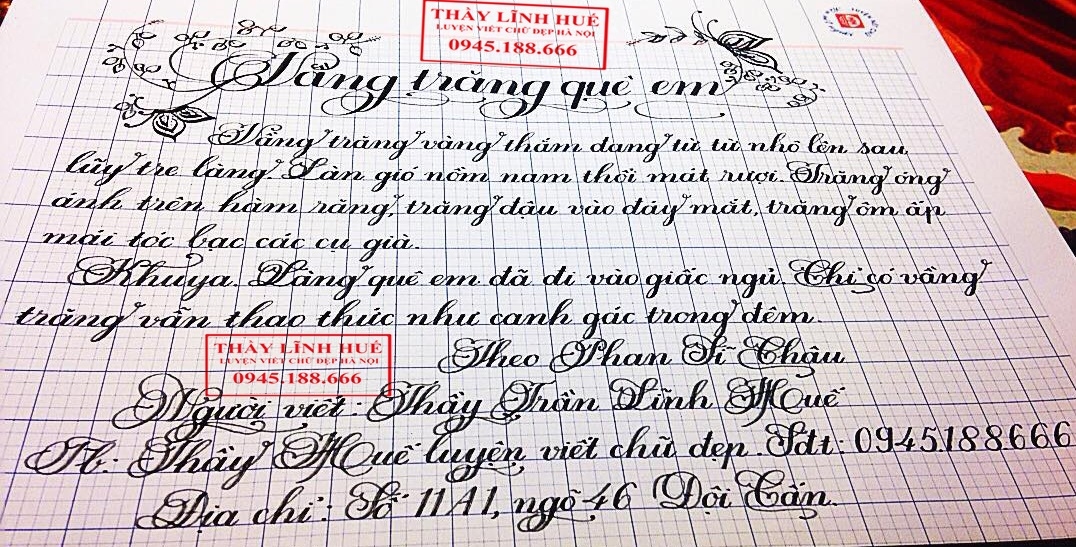 THẦY LĨNH HUẾ
LUYỆN VIẾT CHỮ ĐẸP HÀ NỘI
0945.188.666
Vầng trăng quê em
Vầng trăng vàng thắm đang từ từ nhô lên sau
lũy tre làng. Làn gió nồm nam thổi mát rượi. Trăng óng
ánh trên hàm răng, trăng đậu vào đáy mắt, trăng ôm ấp
mái tóc bạc các cụ già.
Khuya. Làng quê em đã đi vào giấc ngủ. Chỉ có vầng
trăng vẫn thao thức như canh gác trong đêm.
THẦY LĨNH HUẾ
LUYỆN VIẾT CHỮ ĐẸP HÀ NỘI
0945.188.666
Theo Phan Sĩ Châu
Người viết: Thầy Trần Lĩnh Huế
Fb: Thầy Huế luyện viết chữ đẹp. Sđt: 0945188666
Địa chỉ: Số 11A1, ngõ 46 Đội Cấn.